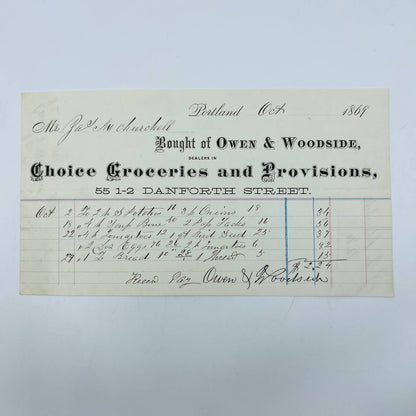 Portland Oct 1869
Mr Jas M Churchill
Bought of OWEN & WOODSIDE,
DEALERS IN
Choice Groceries and Provisions,
55 1-2 DANFORTH STREET.
Oct 2 To 2 S Potatoes 16 3 Onions 18 34
Soup Bone 40 2 Pap Tacks 16 56
22 Tomatoes 12 1 Bird Seed 25 37
2 Doz Eggs 76 2 Tomatoes 6 82
29 1 Bread 10 1 Thread 5 15
$2.24
Recd Pay Owen & Woodside